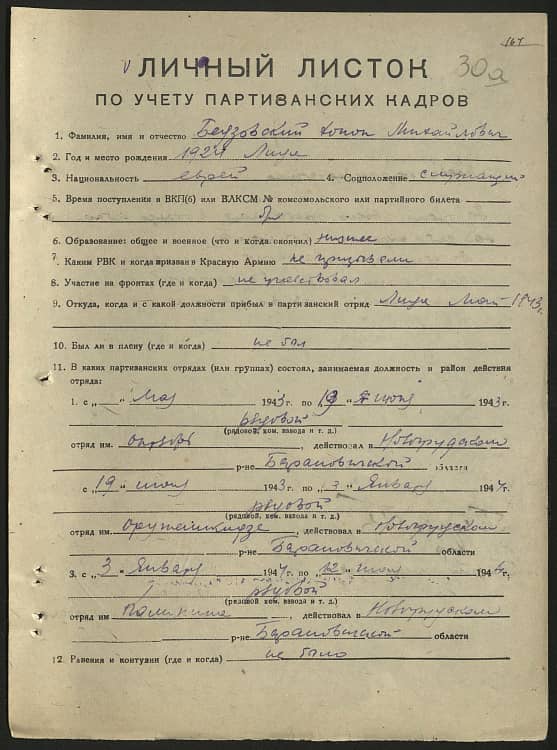 167
30а
ЛИЧНЫЙ ЛИСТОК
ПО УЧЕТУ ПАРТИЗАНСКИХ КАДРОВ
1. Фамилия, имя и отчество Беузовский Михайлович
2. Год и место рождения 1924 Лида
3. Национальность еврей 4. Соцположение служащий
5. Время поступления в ВКП(б) или ВЛКСМ № комсомольского или партийного билета
б/п
6. Образование: общее и военное (что и когда окончил) низшее
7. Каким РВК и когда призван в Красную Армию не призывали
8. Участие на фронтах (где и когда) не участвовал
9. Откуда, когда и с какой должности прибыл в партизанский отряд Лида Май 1943г.
10. Был ли в плену (где и когда) не был
11. В каких партизанских отрядах (или группах) состоял, занимаемая должность и район действия
отряда:
1. с „ “ Мая 1943 г. по „19 “ июня 1943 г.
рядовой
(рядовой, ком. взвода и т. д.)
отряд им. Октябрь , действовал в Новогрудском
р-не Барановичской области
с „19 “ июня 1943 г. по „3 “ Января 1944 г.
рядовой
(рядовой, ком. взвода и т. д.)
отряд им. Оружейникидзе , действовал в Новогрудском
р-не Барановичской области
3. с „3 “ Января 1944 г. по „12 “ июня 1944 г.
рядовой
(рядовой ком. взвода и т. д.)
отряд им Калинина , действовал в Новогрудском
р-не Барановичской области
12. Ранения и контузии (где и когда) не было